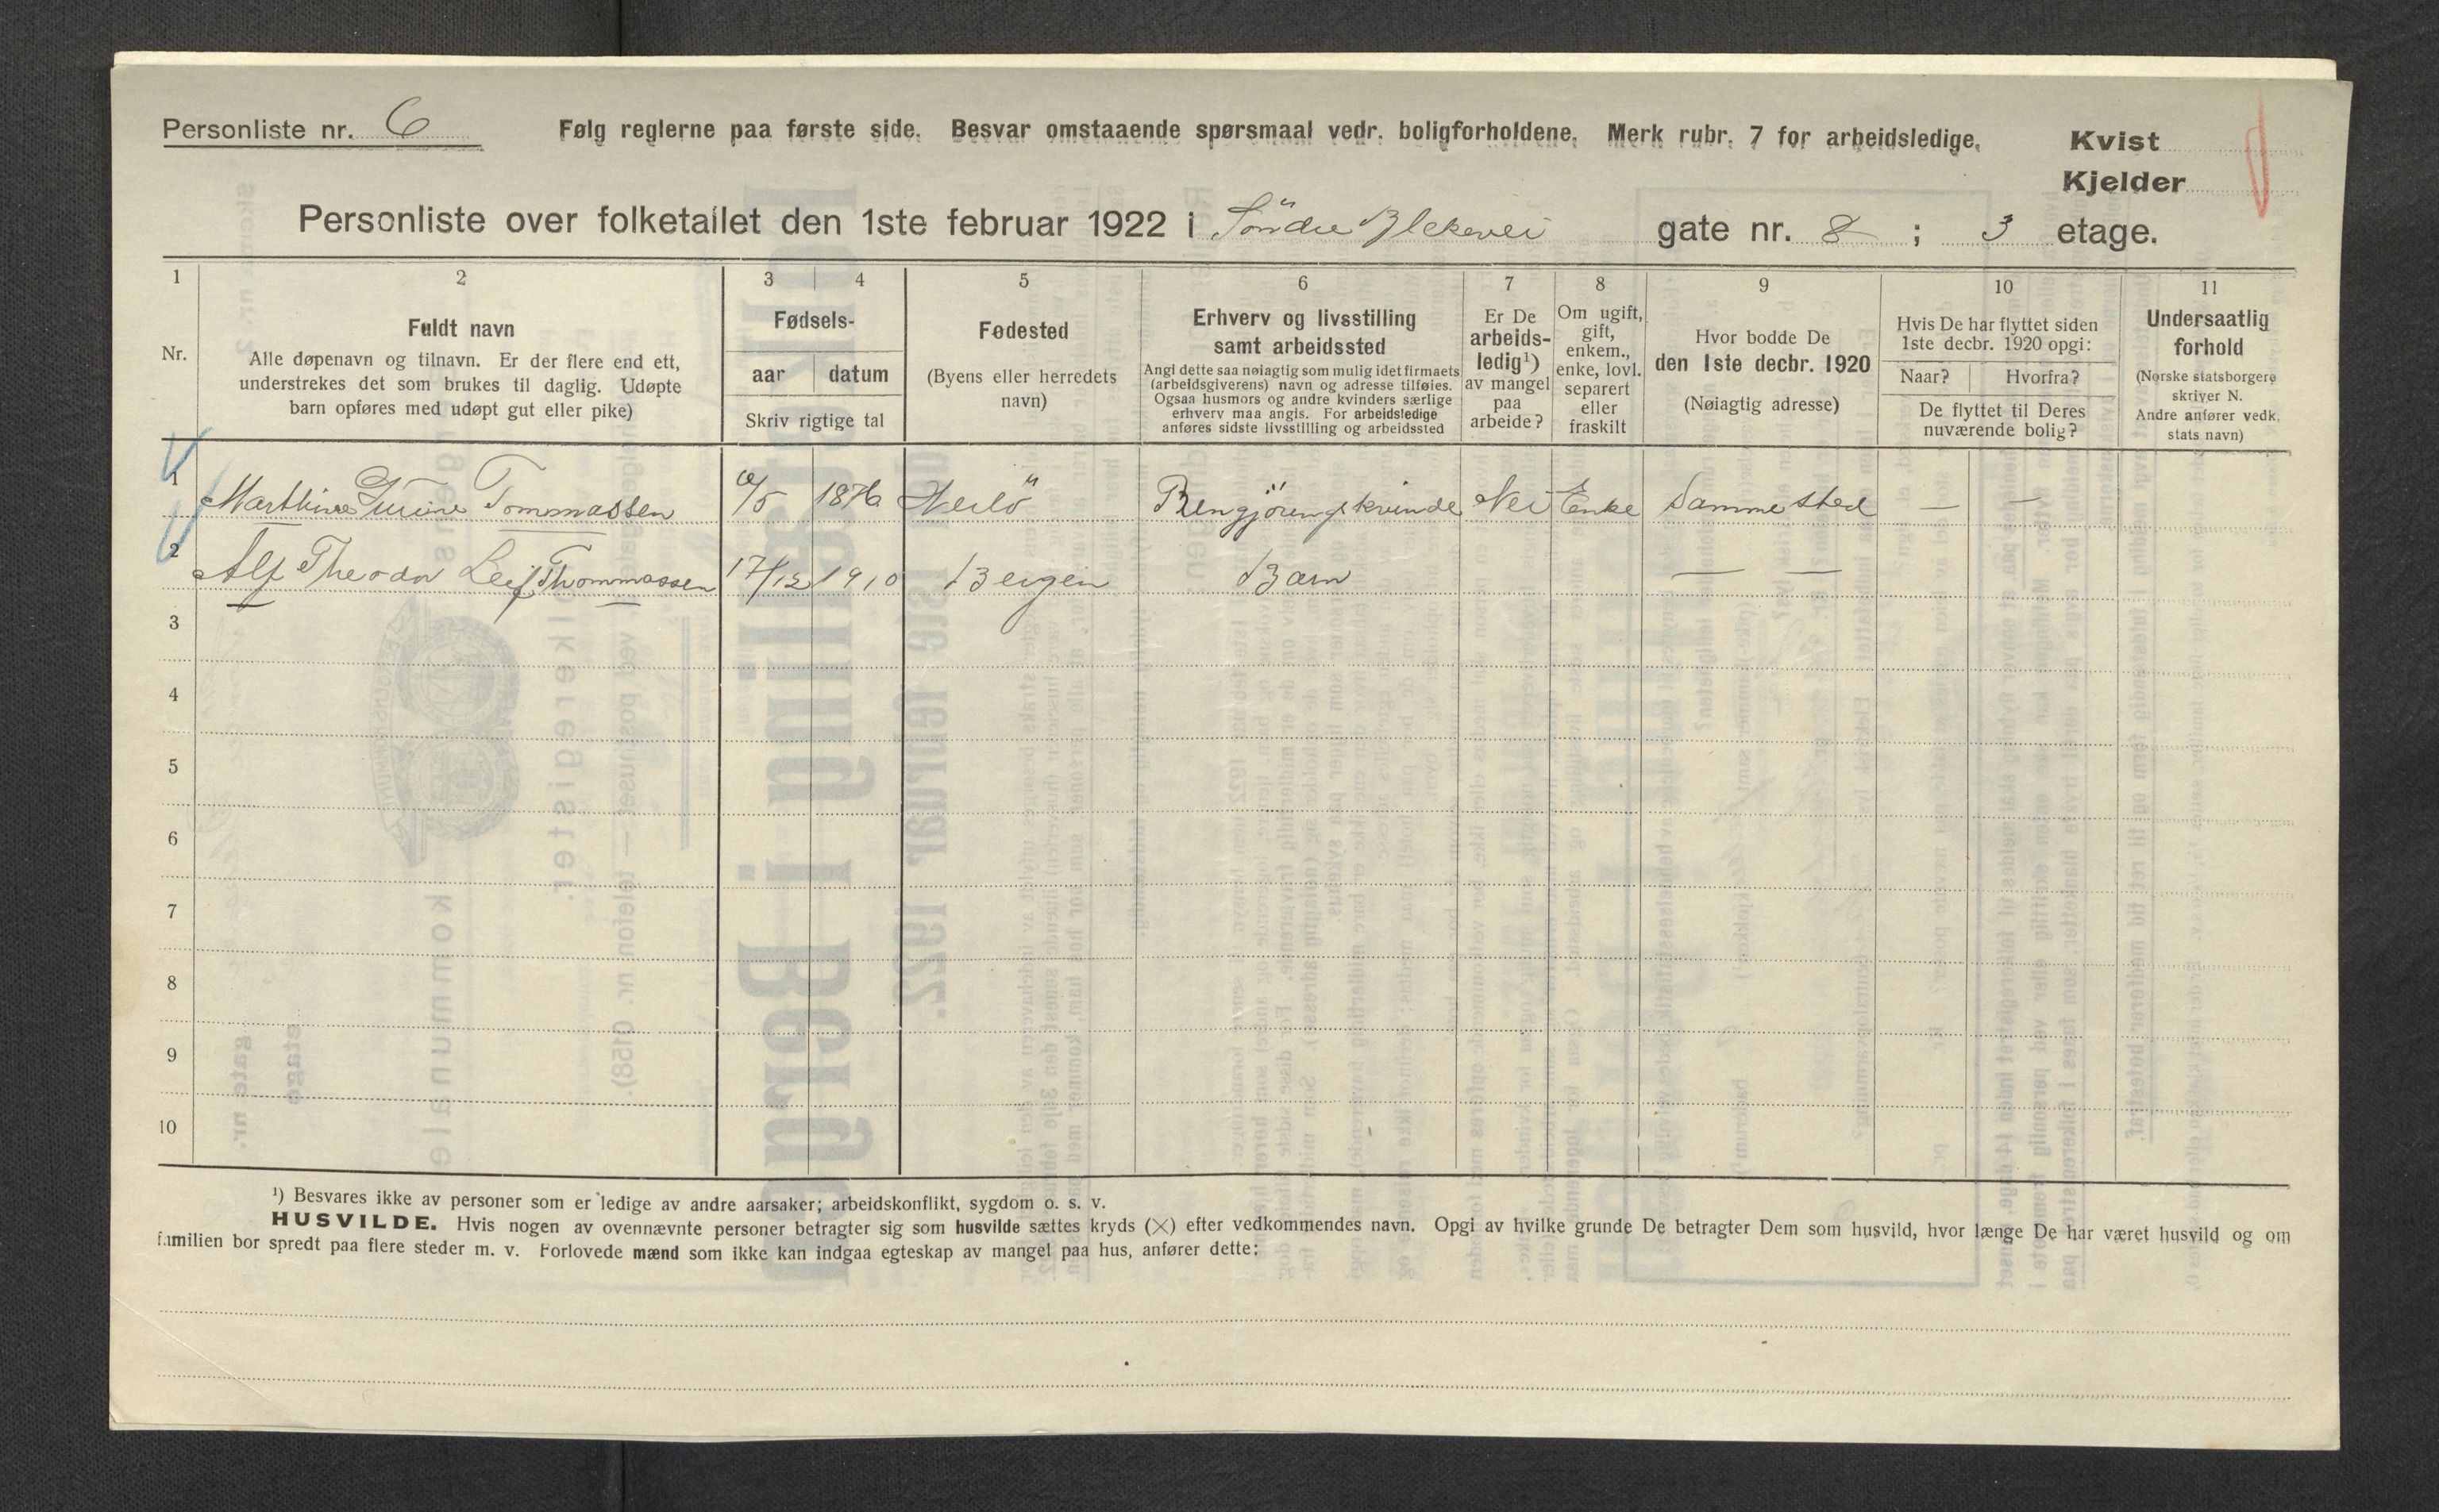 Personliste nr. 6 Følg reglerne paa første side. Besvar omstaaende spørsmaal vedr. boligforholdene. Merk rubr. 7 for arbeidsledige. Kvist
Kjelder
Personliste over folketallet den 1ste februar 1922 i Söndre Blekevei gate nr. 8 ; 3 etage.
1 2 3 4 5 6 7 8 9 10 11
Nr.
Fuldt navn
Alle døpenavn og tilnavn. Er der flere end ett,
understrekes det som brukes til daglig. Udøpte
barn opføres med udøpt gut eller pike)
Fødsels-
aar datum
Skriv rigtige tal
Fødested
(Byens eller herredets
navn)
Erhverv og livsstilling
samt arbeidssted
Angi dette saa nøiagtig som mulig idet firmaets
(arbeidsgiverens) navn og adresse tilføies.
Ogsaa husmors og andre kvinders særlige
erhverv maa angis. For arbeidsledige
anføres sidste livsstilling og arbeidssted
Er De
arbeids-
ledig¹)
av mangel
paa
arbeide?
Om ugift,
gift,
enkem.,
enke, lovl.
separert
eller
fraskilt
Hvor bodde De
den 1ste decbr. 1920
(Nøiagtig adresse)
Hvis De har flyttet siden
1ste decbr. 1920 opgi:
Naar? Hvorfra?
De flyttet til Deres
nuværende bolig?
Undersaatlig
forhold
(Norske statsborgere
skriver N.
Andre anfører vedk.
stats navn)
1 Marthine Tommassen /5 1876 Herlö Rengjöringskvinde Nei Enke Samme sted — —
2 Alf Theodor Leif Thommassen 17/12 1910 Bergen Barn — —
3
4
5
6
7
8
9
10
¹) Besvares ikke av personer som er ledige av andre aarsaker; arbeidskonflikt, sygdom o. s. v.
HUSVILDE. Hvis nogen av ovennævnte personer betragter sig som husvilde sættes kryds (×) efter vedkommendes navn. Opgi av hvilke grunde De betragter Dem som husvild, hvor længe De har været husvild og om
familien bor spredt paa flere steder m. v. Forlovede mænd som ikke kan indgaa egteskap av mangel paa hus, anfører dette: